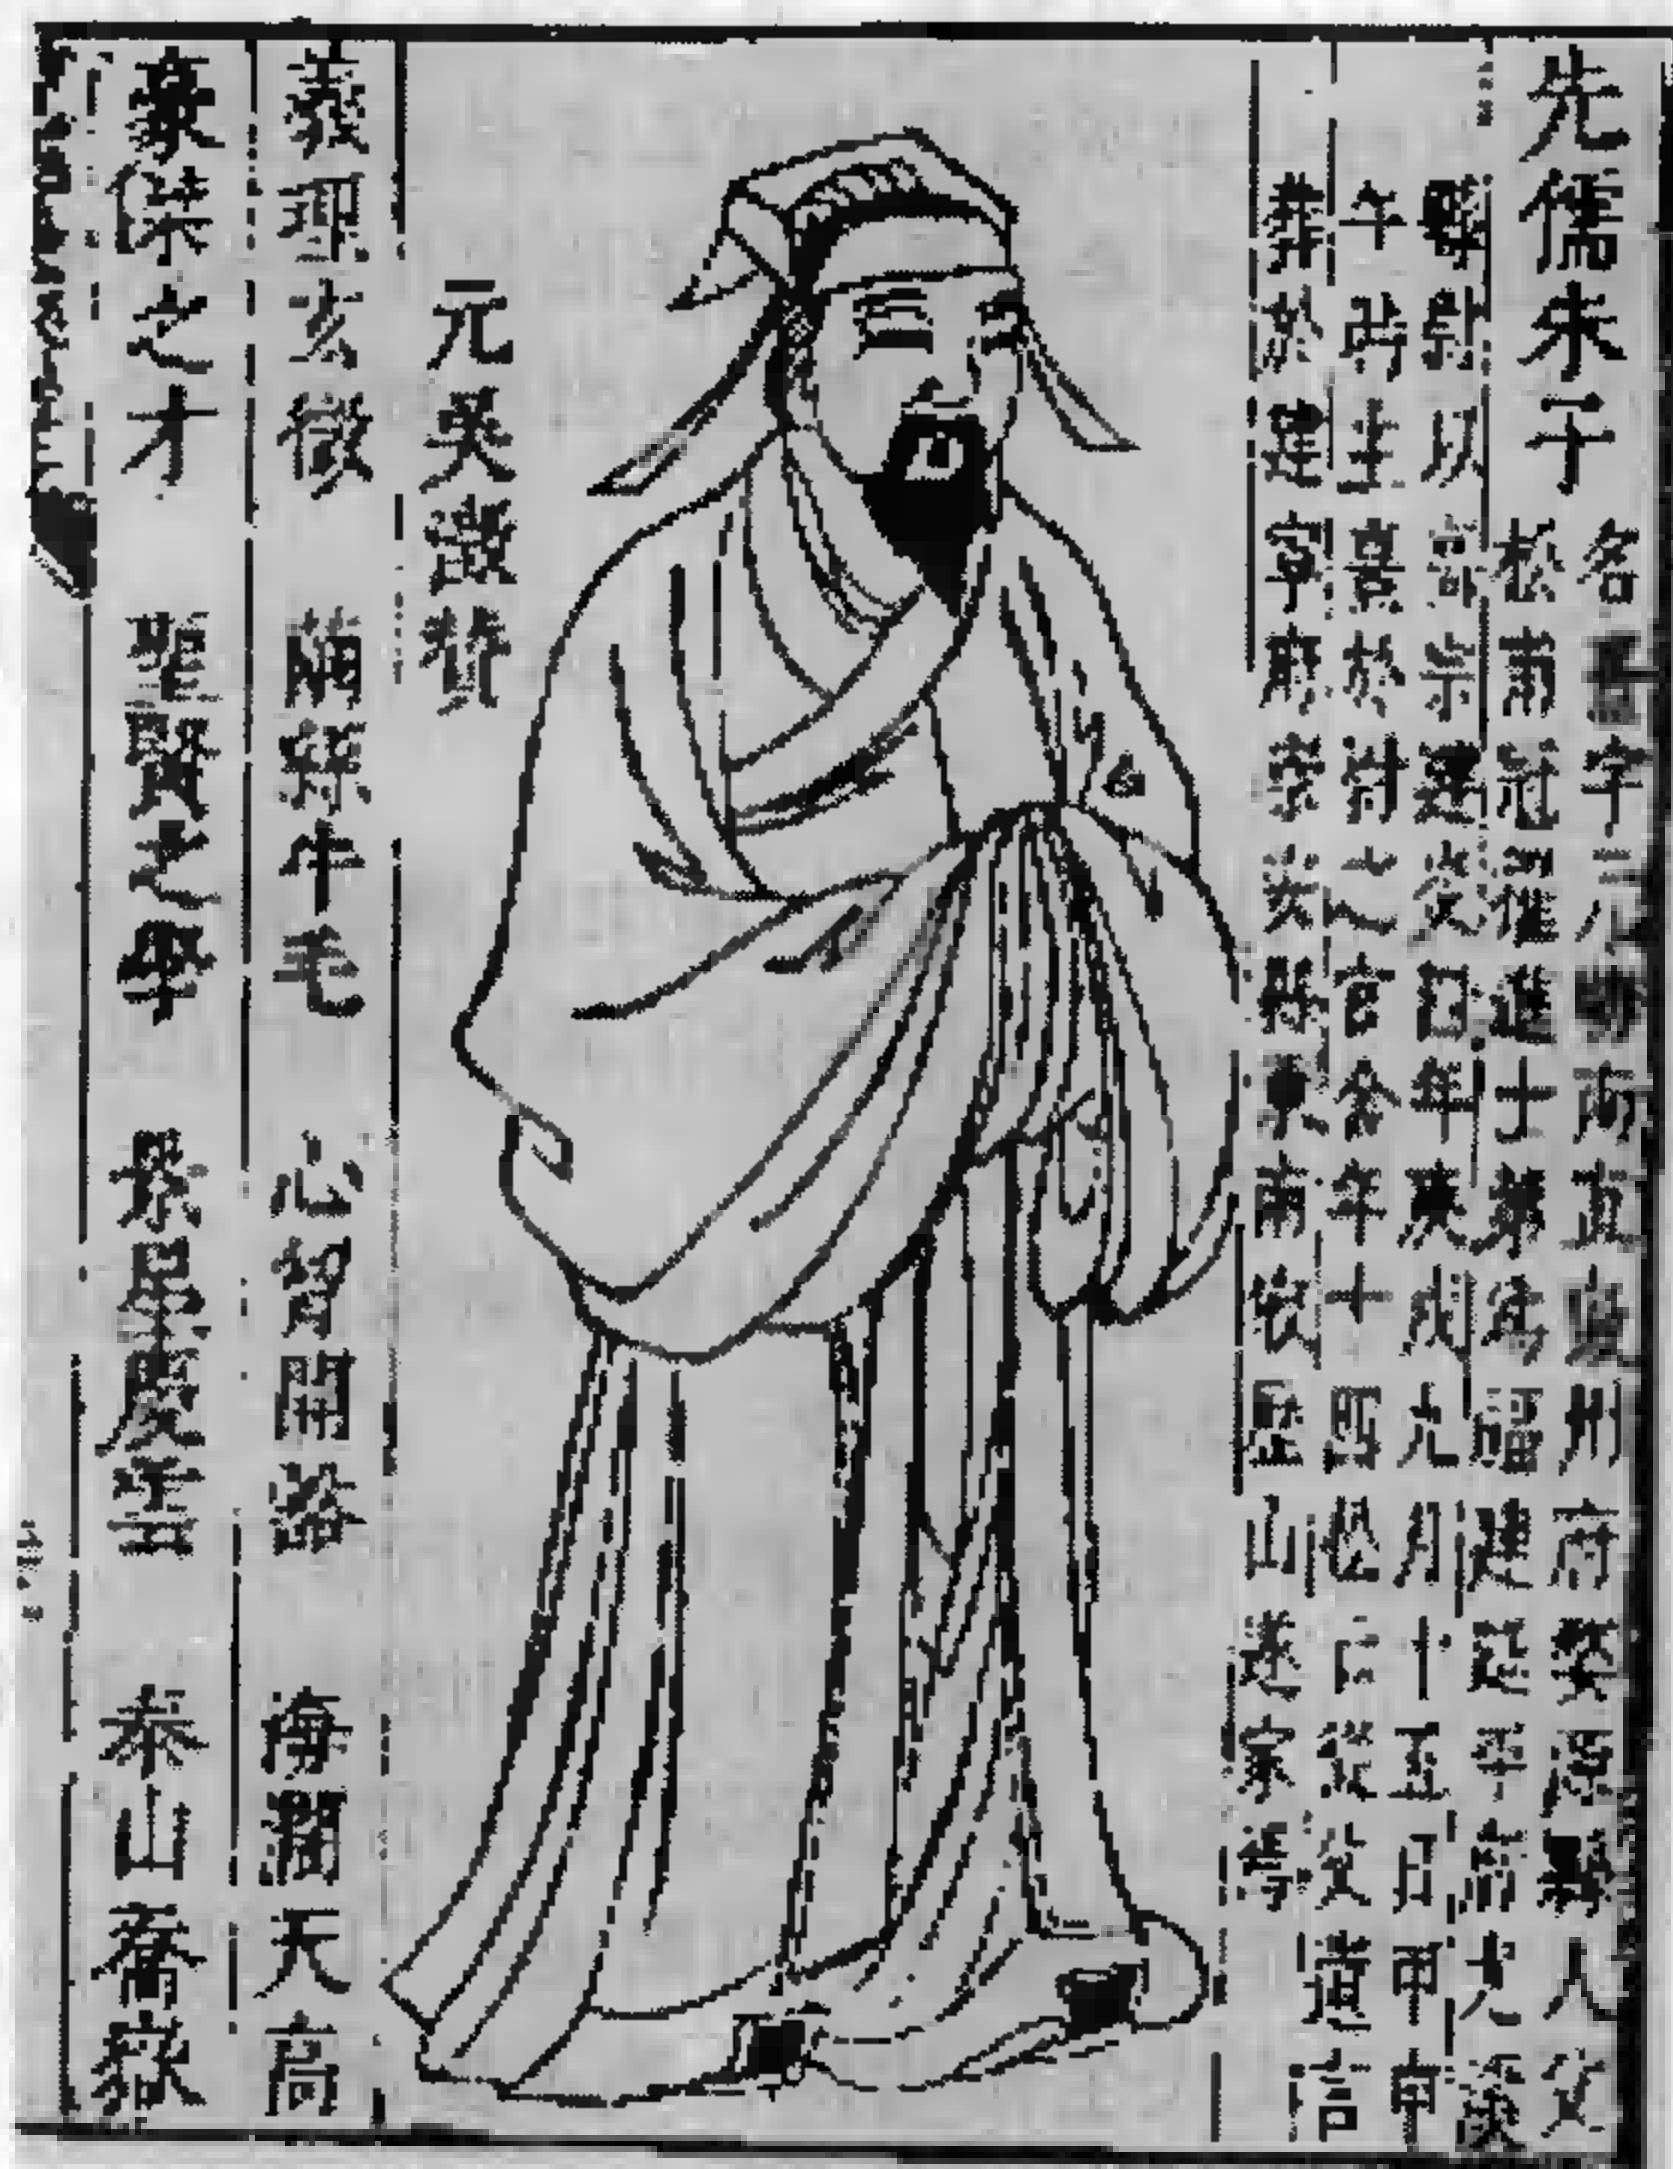 先儒朱子
名熹字元晦南直徽州府婺源縣人父
松甫冠擢進士第為 建延平 尤溪
縣尉以高宗建炎四年庚戌九月十五日甲申
午時生熹於尉之官舍年十四松亡從父遺言
葬於建寧府崇安縣 東南 歷山遂家焉
元吳澂贊
義理玄微 繭絲牛毛 心胷開豁 海濶天高
豪傑之才 聖賢之學 景星慶雲 泰山喬嶽